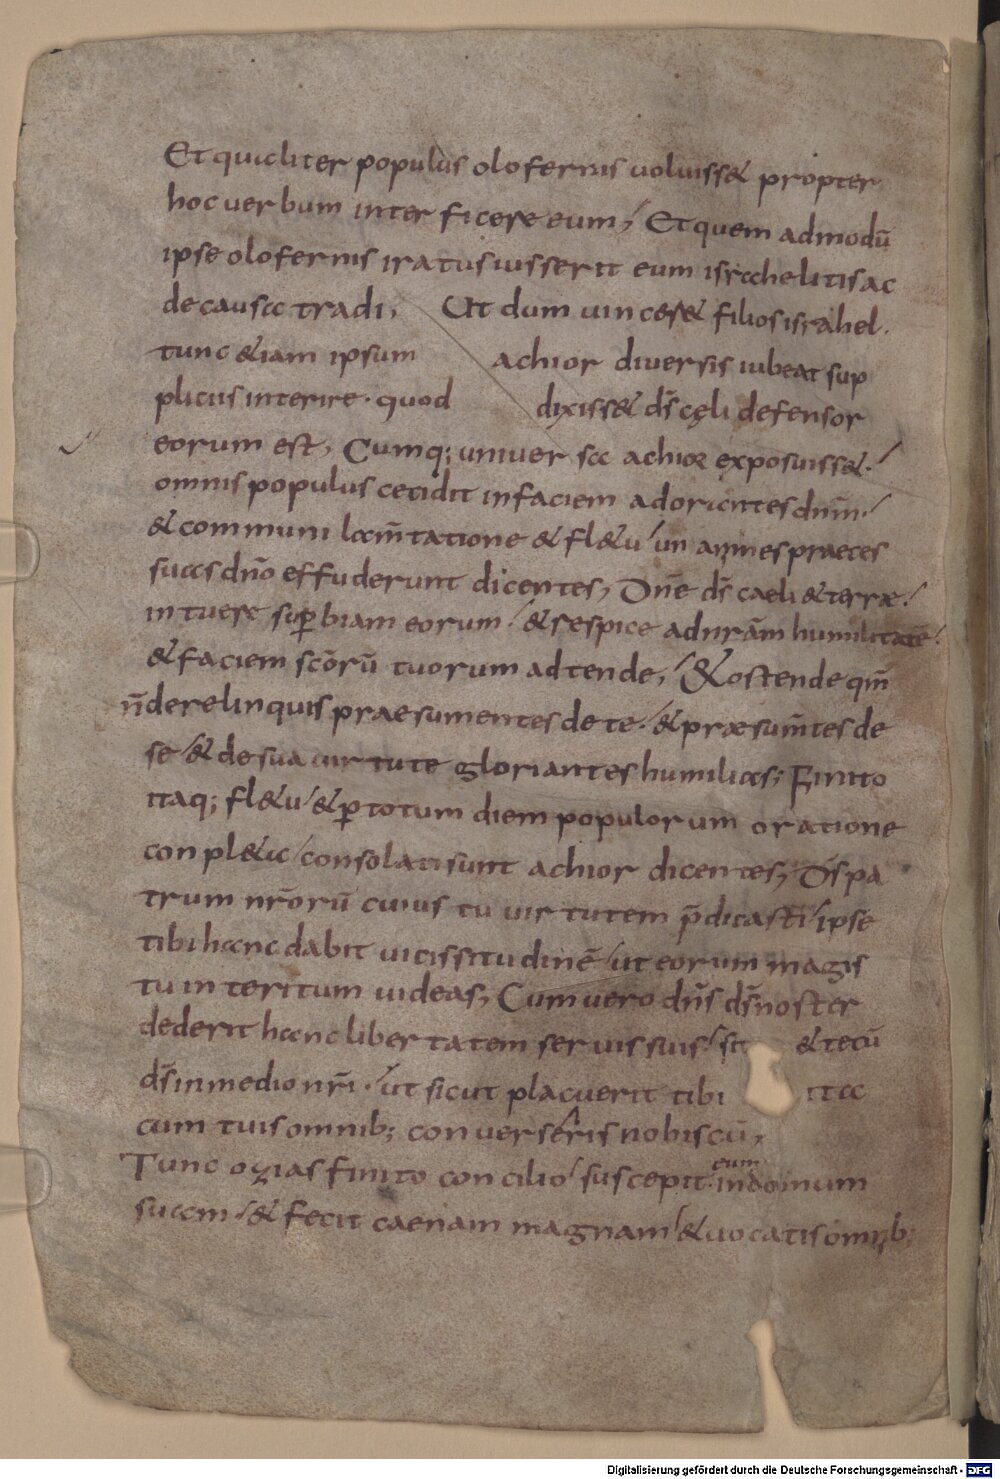 Et qualiter populus olofernis uoluiss& propter
hoc uerbum interficere eum; Et quem admodū
ipse olofernis iratus iusserit eum israhelitis ac
de causa tradi, Ut dum uinceř& filios israhel.
tunc &iam ipsum achior diversis iubeat sup
pliciis interire. quod dixiss& d̄s cęli defensor
eorum est, Cumq; univer sa achior exposuiss&.
omnis populus cecidit in faciem adorantes dn̄m.
& communi lam̄tatione & fl&u un animes praeces
suas dn̄o effuderunt dicentes, Dn̄e d̄s caeli & terræ.
intuere sup̱biam eorum. & respice ad nr̄am humilitatē.
& faciem sc̄orū tuorum ad tende, & ostende qm̄
n̄ derelinquis praesumentes de te. & præsum̄tes de
se & de sua uirtute gloriantes humilias; Finito
itaq; fl&u & p̱ totum diem populorum oratione
con pl&a consolati sunt achior dicentes, D̄s pa
trum nr̄orū cuius tu uirtutem p̄dicasti ipse
tibi hanc dabit uicissitudinē ut eorum magis
tu interitum uideas, Cum uero dn̄s d̄s noster
dederit hanc libertatem servis suis. sit & tecū
d̄s in medio nr̄i. ut sicut placuerit tibi ita
cum tuis omnib; converseris nobiscū,
Tunc ozias finito concilio suscepit eum in domum
suam. & fecit caenam magnam & uocatis omnib;
Digitalisierung gefördert durch die Deutsche Forschungsgemeinschaft - DFG